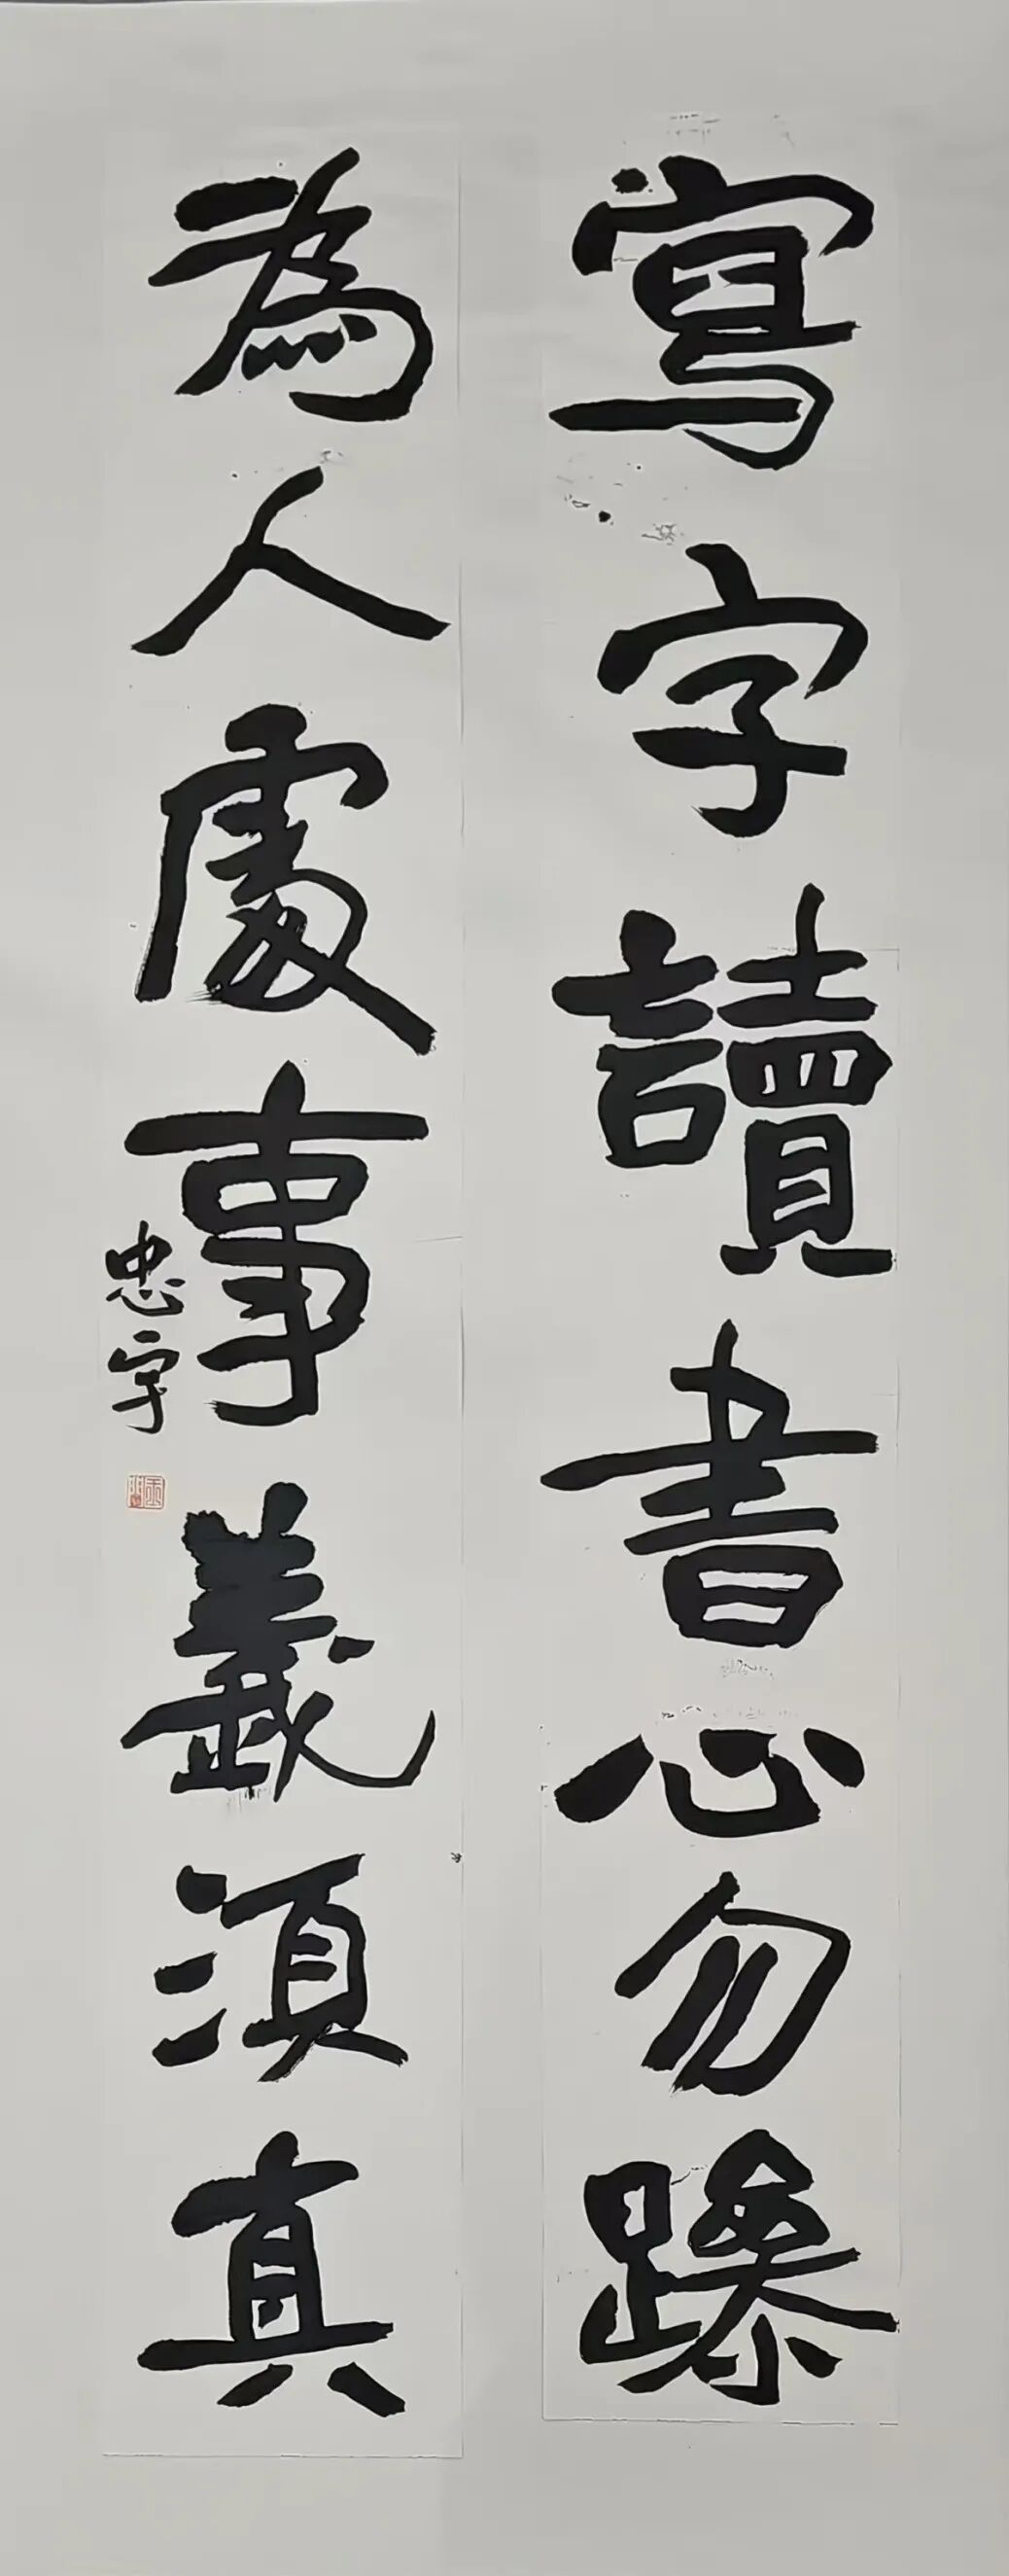 寫字讀書心勿躁
為人處事義須真
忠宇